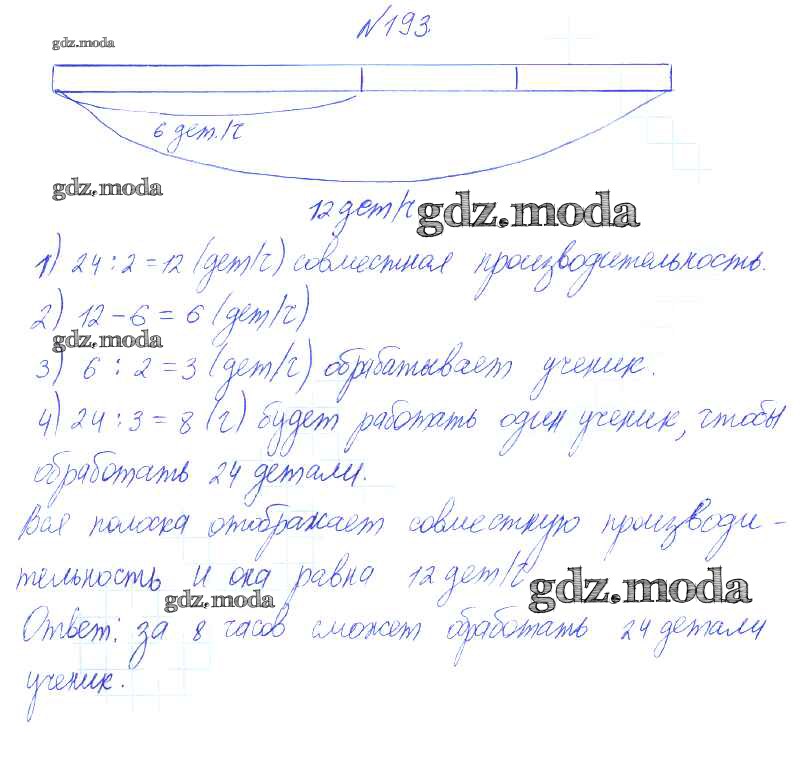 №193.
gdz.moda
6 дет./ч
gdz.moda
12 дет/ч gdz.moda
1) 24 : 2 = 12 (дет/ч) совместная производительность.
2) 12 – 6 = 6 (дет/ч)
gdz.moda
3) 6 : 2 = 3 (дет/ч) обрабатывает ученик.
4) 24 : 3 = 8 (ч) будет работать один ученик, чтобы
обработать 24 детали.
Вся полоска отображает совместную производи-
тельность и она равна 12 дет/ч
gdz.moda gdz.moda
Ответ: за 8 часов сможет обработать 24 детали
ученик.